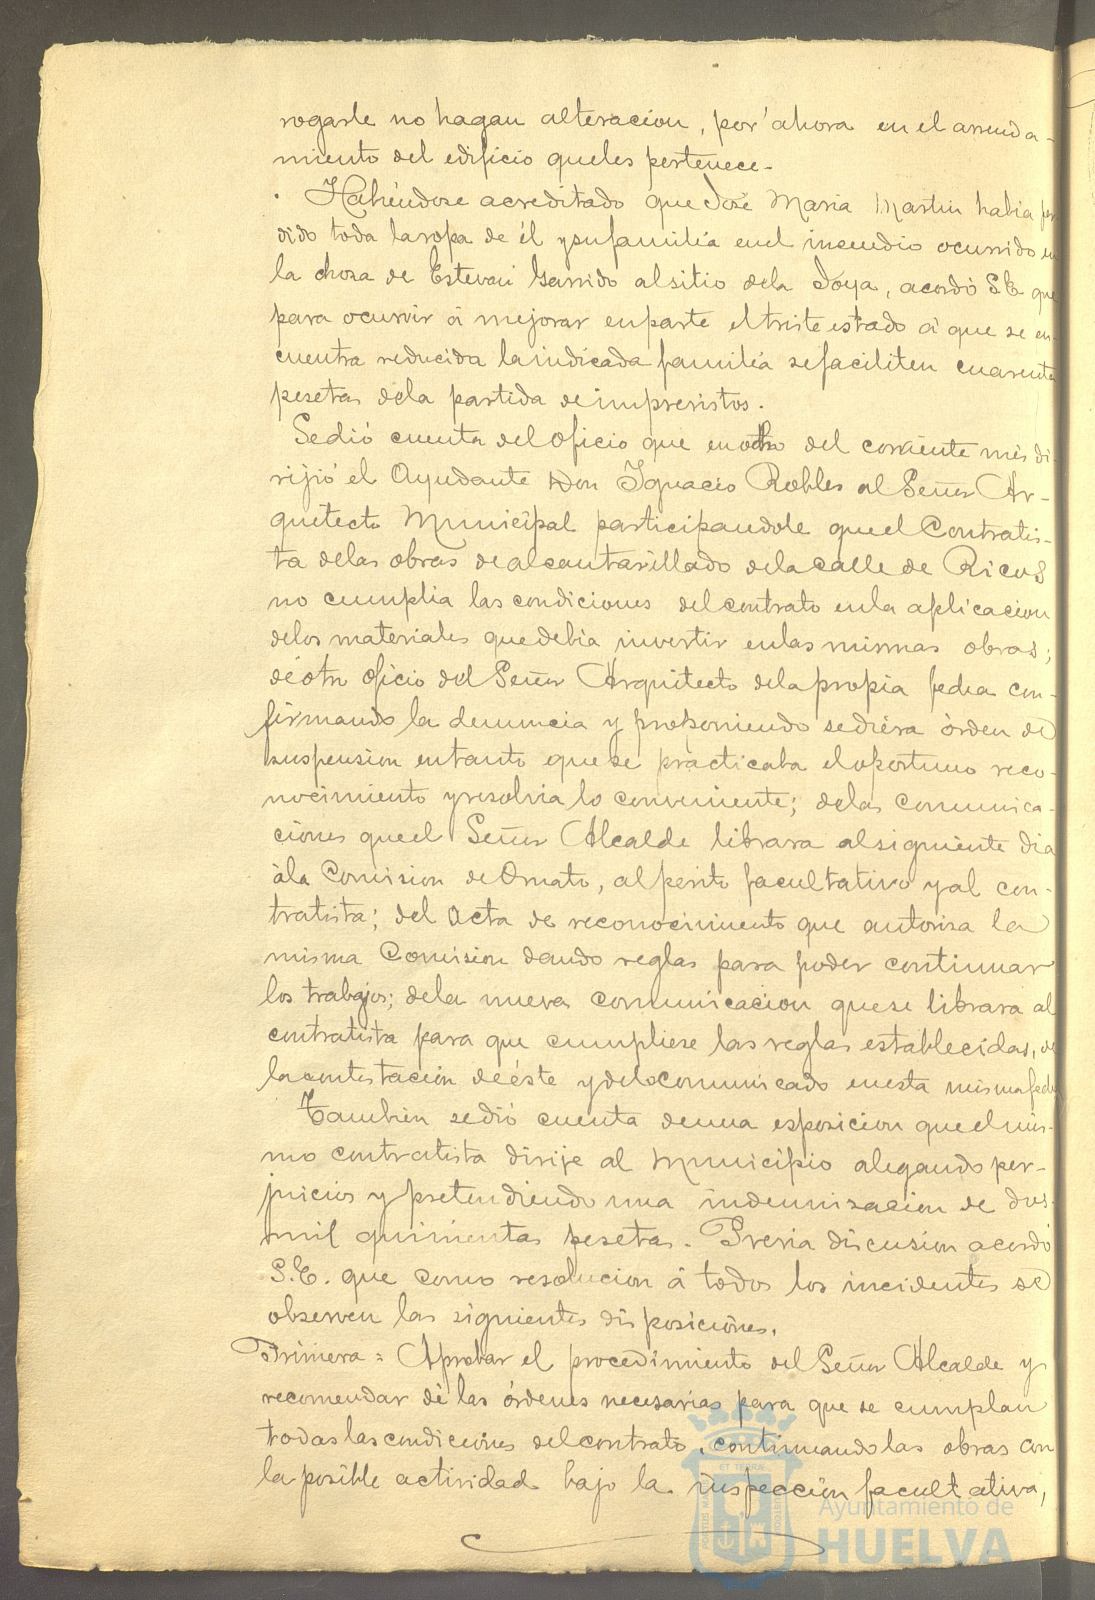 rogarle no hagan alteracion, por ahora en el arrenda-
miento del edificio que les pertenece.
Habiéndose acreditado que José Maria Martin habia per
dido toda la ropa de él y su familia en el incendio ocurrido en
la choza de Estevan Garrido al sitio de la Joya, acordó S.E. que
para ocurrir á mejorar en parte el triste estado á que se en-
cuentra reducida la indicada familia se faciliten cuarenta
pesetas de la partida de imprevistos.
Se dió cuenta del oficio que en ocho del corriente mes di-
rijió el Ayudante Don Ignacio Robles al Señor Ar-
quitecto Municipal participandole que el Contratis-
ta de las obras de alcantarillado de la calle de Ricos
no cumplia las condiciones del contrato en la aplicacion
de los materiales que debia invertir en las mismas obras;
de otro oficio del Señor Arquitecto de la propia fecha con-
firmando la denuncia y proponiendo se diera órden de
suspension en tanto que se practicaba el oportuno reco-
nocimiento y resolvia lo conveniente; de las comunica-
ciones que el Señor Alcalde librara al siguiente dia
á la Comision de Ornato, al perito facultativo y al con-
tratista; del acta de reconocimiento que autoriza la
misma Comision dando reglas para poder continuar
los trabajos; de la nueva comunicacion que se librara al
contratista para que cumpliese las reglas establecidas, de
la contestacion de éste y de lo comunicado en esta misma fecha
Tambien se dió cuenta de una esposicion que el mis-
mo contratista dirije al Municipio alegando per-
juicios y pretendiendo una indemnizacion de dos
mil quinientas pesetas. Previa discusion acordó
S.E. que como resolucion á todos los incidentes se
observen las siguientes disposiciones.
Primera = Aprobar el procedimiento del Señor Alcalde y
recomendar dé las órdenes necesarias para que se cumplan
todas las condiciones del contrato, continuando las obras con
la posible actividad bajo la inspeccion facultativa,
Ayuntamiento de
HUELVA